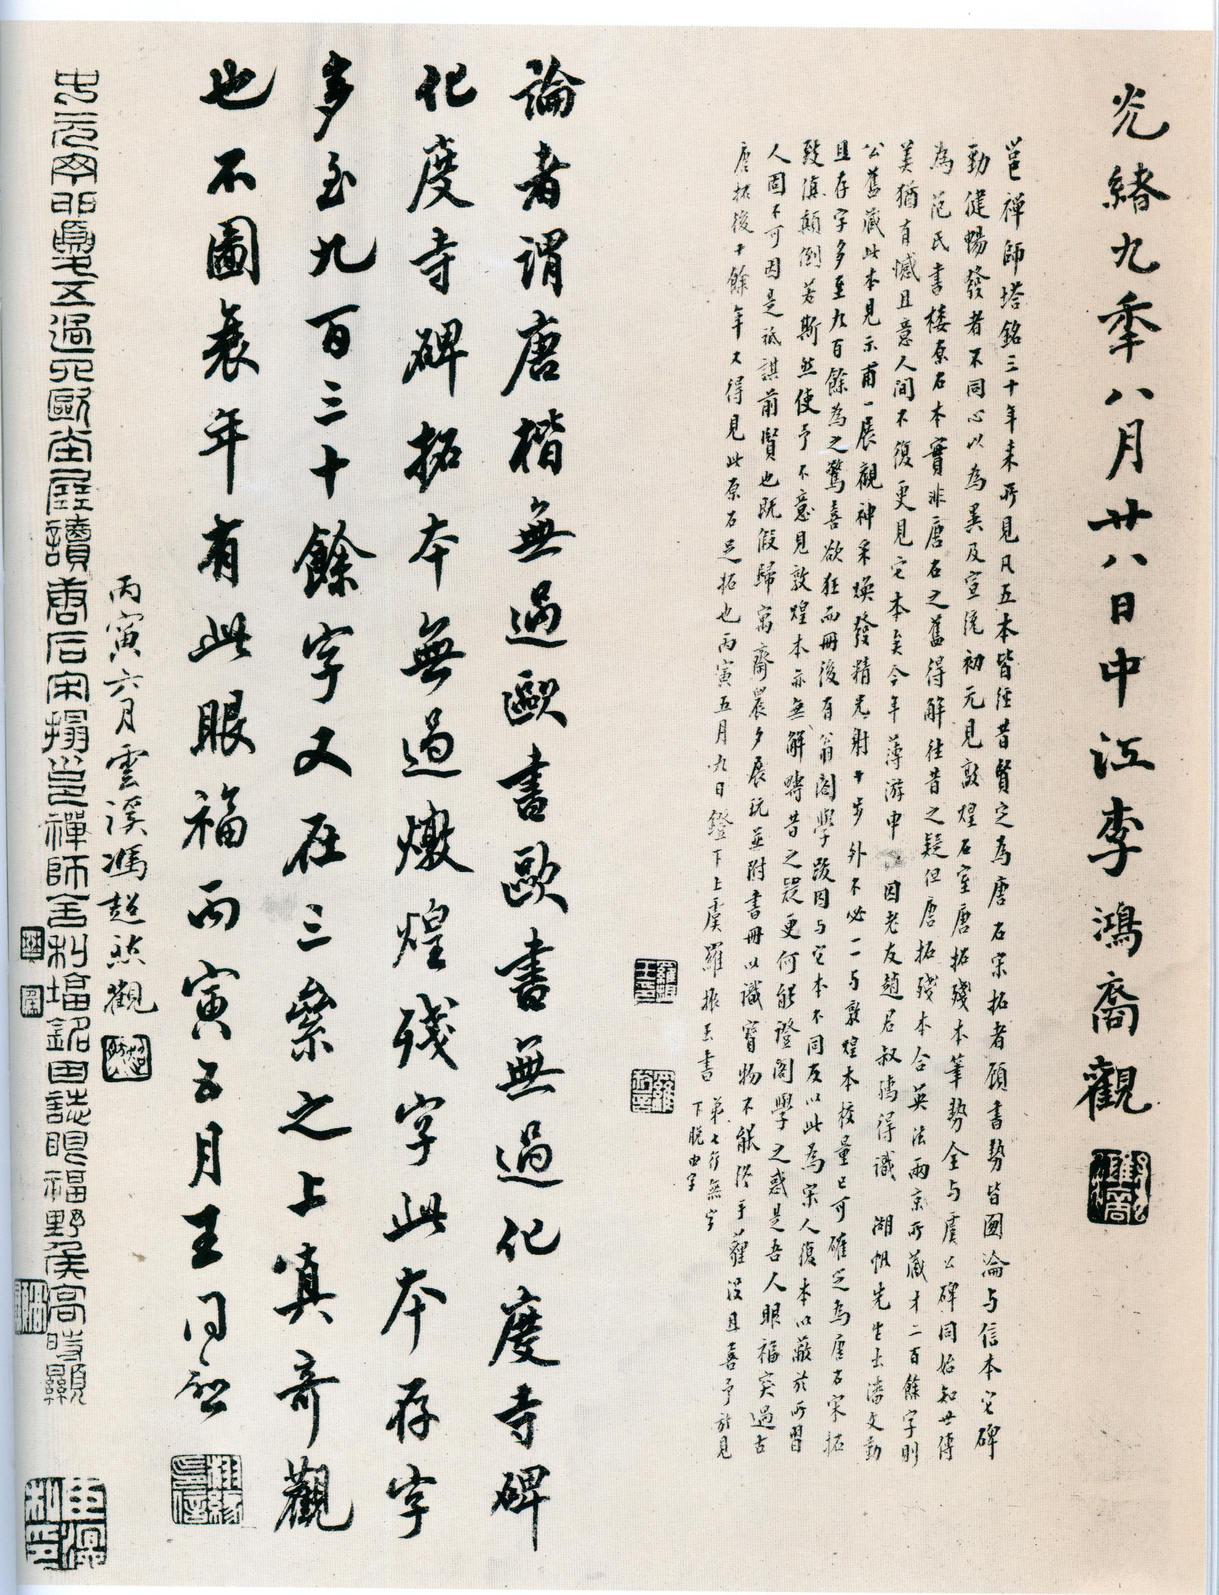 光緒九年八月廿八日中江李鴻裔觀
邕禪師塔銘三十年來所見凡五本皆經昔賢定為唐石宋拓者顧書勢皆圓淪与信本它碑
勁健暢發者不同心以為異及宣統初元見敦煌石室唐拓殘本筆勢全与虞公碑同始知世傳
為范氏書樓原石本實非唐石之舊得解往昔之疑但唐拓殘本合英法兩京所藏才二百餘字則
美猶有憾且意人間不復更見它本矣今年薄游申因老友趙君叔孺得識湖帆先生出潘文勤
公舊藏此本見示甫一展觀神采煥發精光射十步外不必一一与敦煌本校量已可確定為唐石宋拓
且存字多至九百餘為之驚喜欲狂而冊後有翁閣學跋因与它本不同反以此為宋人復本以蔽於所習
致滇顛倒若斯然使予不意見敦煌本亦無解疇昔之疑更何能證閣學之惑是吾人眼福突過古
人固不可因是祗諆前賢也既假歸寓齋晨夕展玩並附書冊以識寶物不能終于薶沒且喜予於見
唐拓後十餘年又得見此原石足拓也丙寅五月九日鐙下上虞羅振玉書
第七行無字
下脫由字
論者謂唐楷無過歐書歐書無過化度寺碑
化度寺碑拓本無過燉煌殘字此本存字
多至九百三十餘字又在三絫之上真奇觀
也不圖衰年有此眼福丙寅五月王同愈
丙寅六月雲溪馮超然觀
過四歐堂屬讀唐石宋搨邕禪師舍利塔銘因誌眼福野侯高時顯